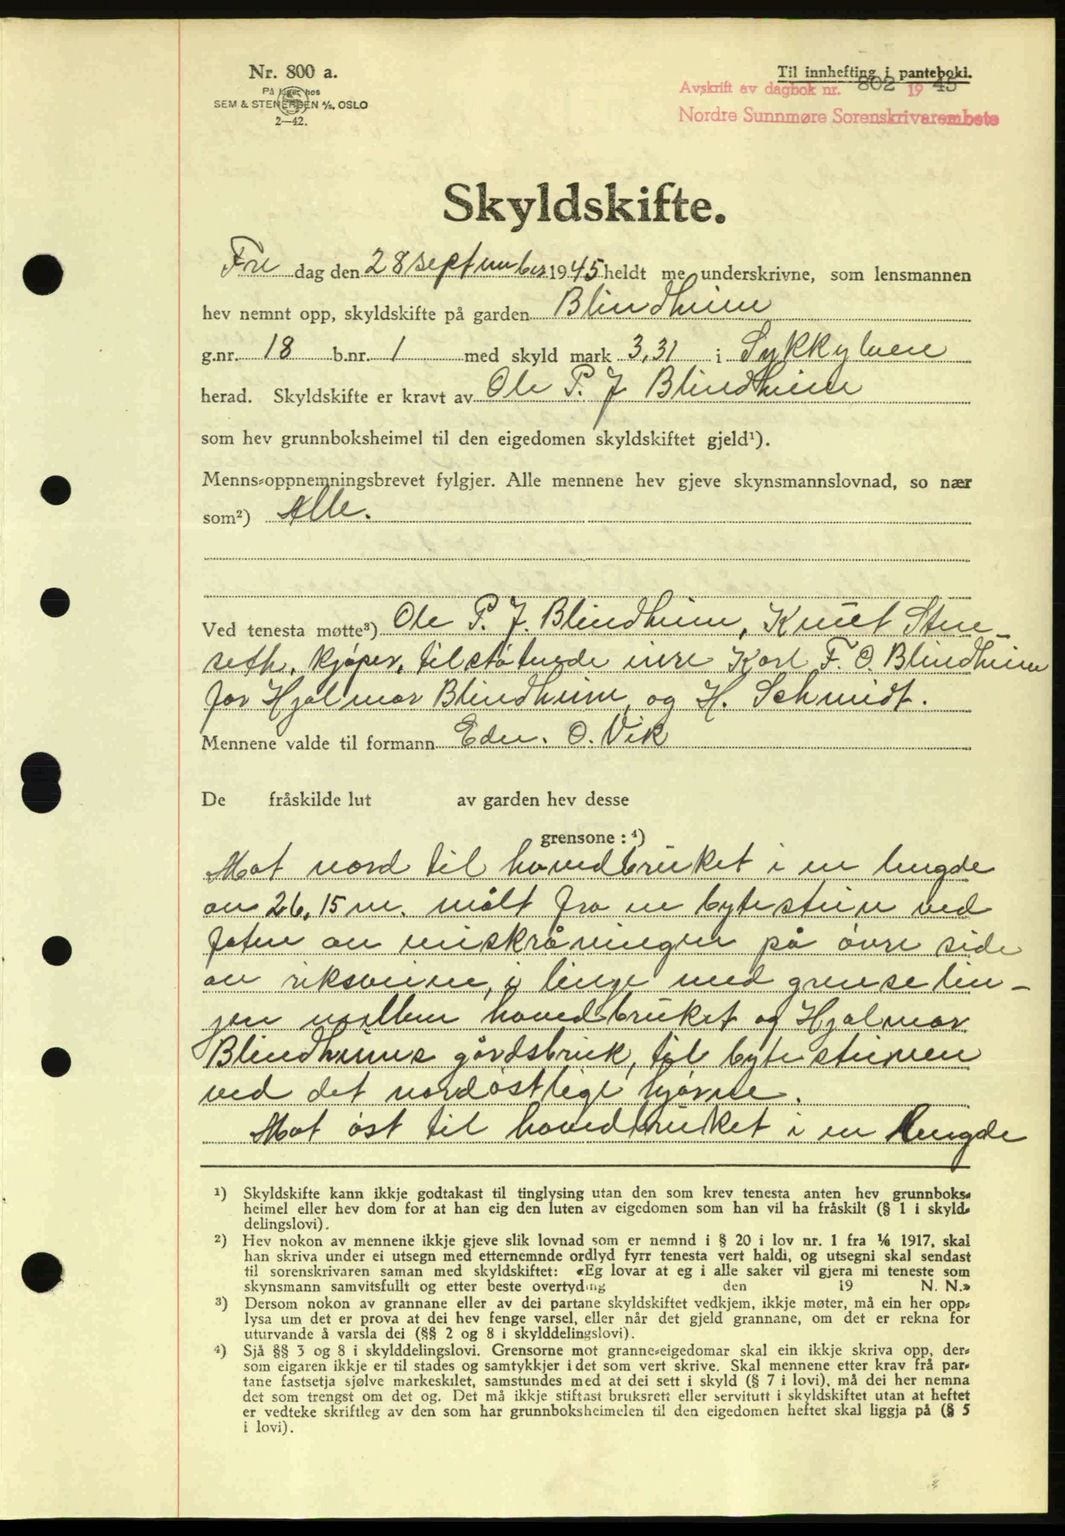 Nr. 800 a.
På lager hos
SEM & STENERSEN A/S, OSLO
2—42.
Til innhefting i panteboki.
Avskrift av dagbok nr. 802 19 45
Nordre Sunnmøre Sorenskrivarembete
Skyldskifte.
Fre dag den 28 september 1945 heldt me underskrivne, som lensmannen
hev nemnt opp, skyldskifte på garden Blindheim
g.nr. 18 b.nr. 1 med skyld mark 3,31 i Sykkylven
herad. Skyldskifte er kravt av Ole P. J Blindheim
som hev grunnboksheimel til den eigedomen skyldskiftet gjeld¹).
Menns-oppnemningsbrevet fylgjer. Alle mennene hev gjeve skynsmannslovnad, so nær
som²) Alle.
Ved tenesta møtte³) Ole P. J. Blindheim, Knut Sten-
seth, kjøper, tilstøtende eiere Karl F. O. Blindheim
for Hjalmar Blindheim, og H. Schmidt.
Mennene valde til formann Edv. O. Vik
De fråskilde lut av garden hev desse
grensone : ⁴)
Mot nord til hovedbruket i en lengde
av 26,15 m. målt fra en bytestein ved
foten av veiskråningen på øvre side
av riksveien, i linje med grenselin-
jen mellem hovedbruket og Hjalmar
Blindheims gårdsbruk, til bytesteinen
ved det nordøstlige hjørne.
Mot øst til hovedbruket i en lengde
¹) Skyldskifte kann ikkje godtakast til tinglysing utan den som krev tenesta anten hev grunnboks-
heimel eller hev dom for at han eig den luten av eigedomen som han vil ha fråskilt (§ 1 i skyld-
delingslovi).
²) Hev nokon av mennene ikkje gjeve slik lovnad som er nemnd i § 20 i lov nr. 1 fra 1/6 1917, skal
han skriva under ei utsegn med etternemnde ordlyd fyrr tenesta vert haldi, og utsegni skal sendast
til sorenskrivaren saman med skyldskiftet: «Eg lovar at eg i alle saker vil gjera mi teneste som
skynsmann samvitsfullt og etter beste overtyding den 19 N. N.»
³) Dersom nokon av grannane eller av dei partane skyldskiftet vedkjem, ikkje møter, må ein her opp-
lysa um det er prova at dei hev fenge varsel, eller når det gjeld grannane, om det er rekna for
uturvande å varsla dei (§§ 2 og 8 i skylddelingslovi).
⁴) Sjå §§ 3 og 8 i skylddelingslovi. Grensorne mot granne-eigedomar skal ein ikkje skriva opp, der-
som eigaren ikkje er til stades og samtykkjer i det som vert skrive. Skal mennene etter krav frå par-
tane fastsetja sjølve markeskilet, samstundes med at dei sett i skyld (§ 7 i lovi), må dei her nemna
det som trengst om det og. Det må ikkje stiftast bruksrett eller servitutt i skyldskiftet utan at heftet
er vedteke skriftleg av den som har grunnboksheimelen til den eigedomen heftet skal liggja på (§ 5
i lovi).